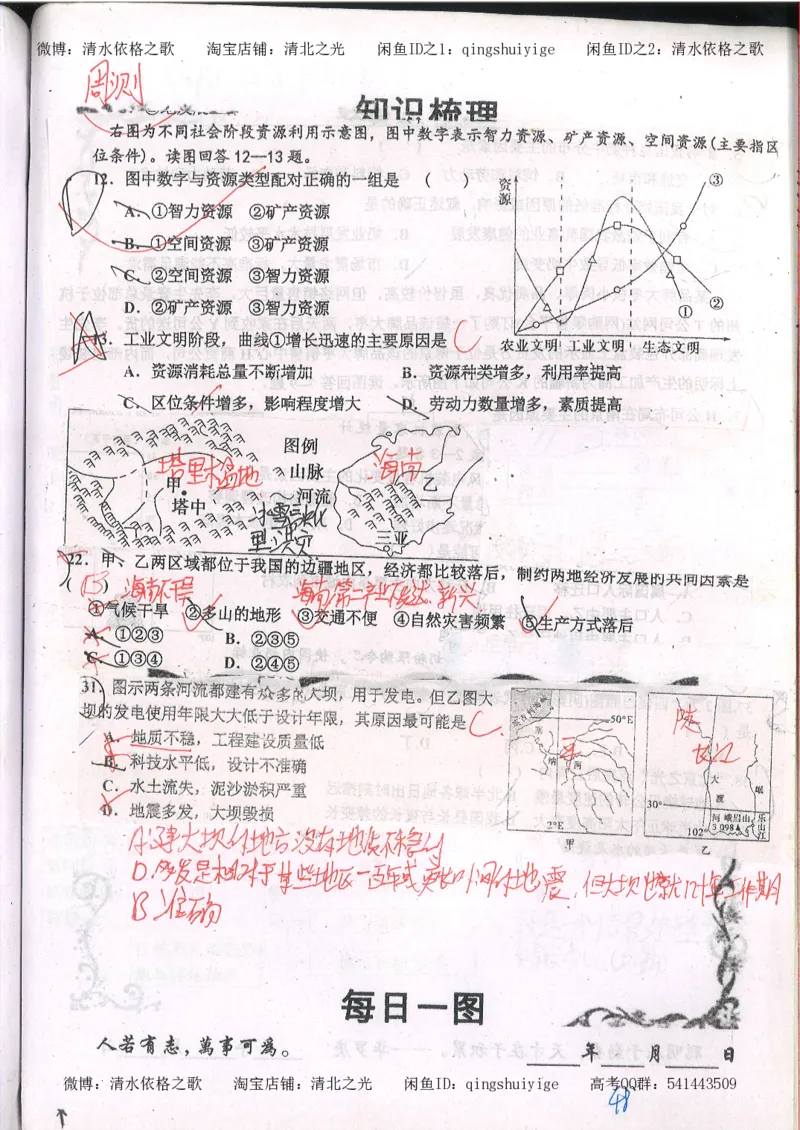 微博：清水依格之歌 淘宝店铺：清北之光 闲鱼ID之1：qingshuiyige 闲鱼ID之2：清水依格之歌
周测
知识梳理
右图为不同社会阶段资源利用示意图，图中数字表示智力资源、矿产资源、空间资源(主要指区
位条件)。读图回答12—13题。
12．图中数字与资源类型配对正确的一组是 （ ）
A．①智力资源 ②矿产资源
B．①空间资源 ③矿产资源
C．②空间资源 ③智力资源
D．②矿产资源 ③智力资源
资源
③
②
①
农业文明 工业文明 生态文明
13．工业文明阶段，曲线①增长迅速的主要原因是 C
A．资源消耗总量不断增加 B．资源种类增多，利用率提高
C．区位条件增多，影响程度增大 D．劳动力数量增多，素质提高
图例
山脉
河流
塔里木盆地
甲
塔中
海南
乙
三亚
22．甲、乙两区域都位于我国的边疆地区，经济都比较落后，制约两地经济发展的共同因素是
（ B ）
①气候干旱 ②多山的地形 ③交通不便 ④自然灾害频繁 ⑤生产方式落后
A．①②③ B．②③⑤
C．①③④ D．②④⑤
31．图示两条河流都建有众多的大坝，用于发电。但乙图大
坝的发电使用年限大大低于设计年限，其原因最可能是 C.
A．地质不稳，工程建设质量低
B．科技水平低，设计不准确
C．水土流失，泥沙淤积严重
D．地震多发，大坝毁损
50°E
塞
纳
河
2°E
甲
大
渡
河
岷
江
30°
峨眉山
3 098
乐山
102°
乙
A.建大坝的地方没有地质不稳的
B 准确
每日一图
人若有志，萬事可為。
年 月 日
微博：清水依格之歌 淘宝店铺：清北之光 闲鱼ID：qingshuiyige 高考QQ群：541443509
48